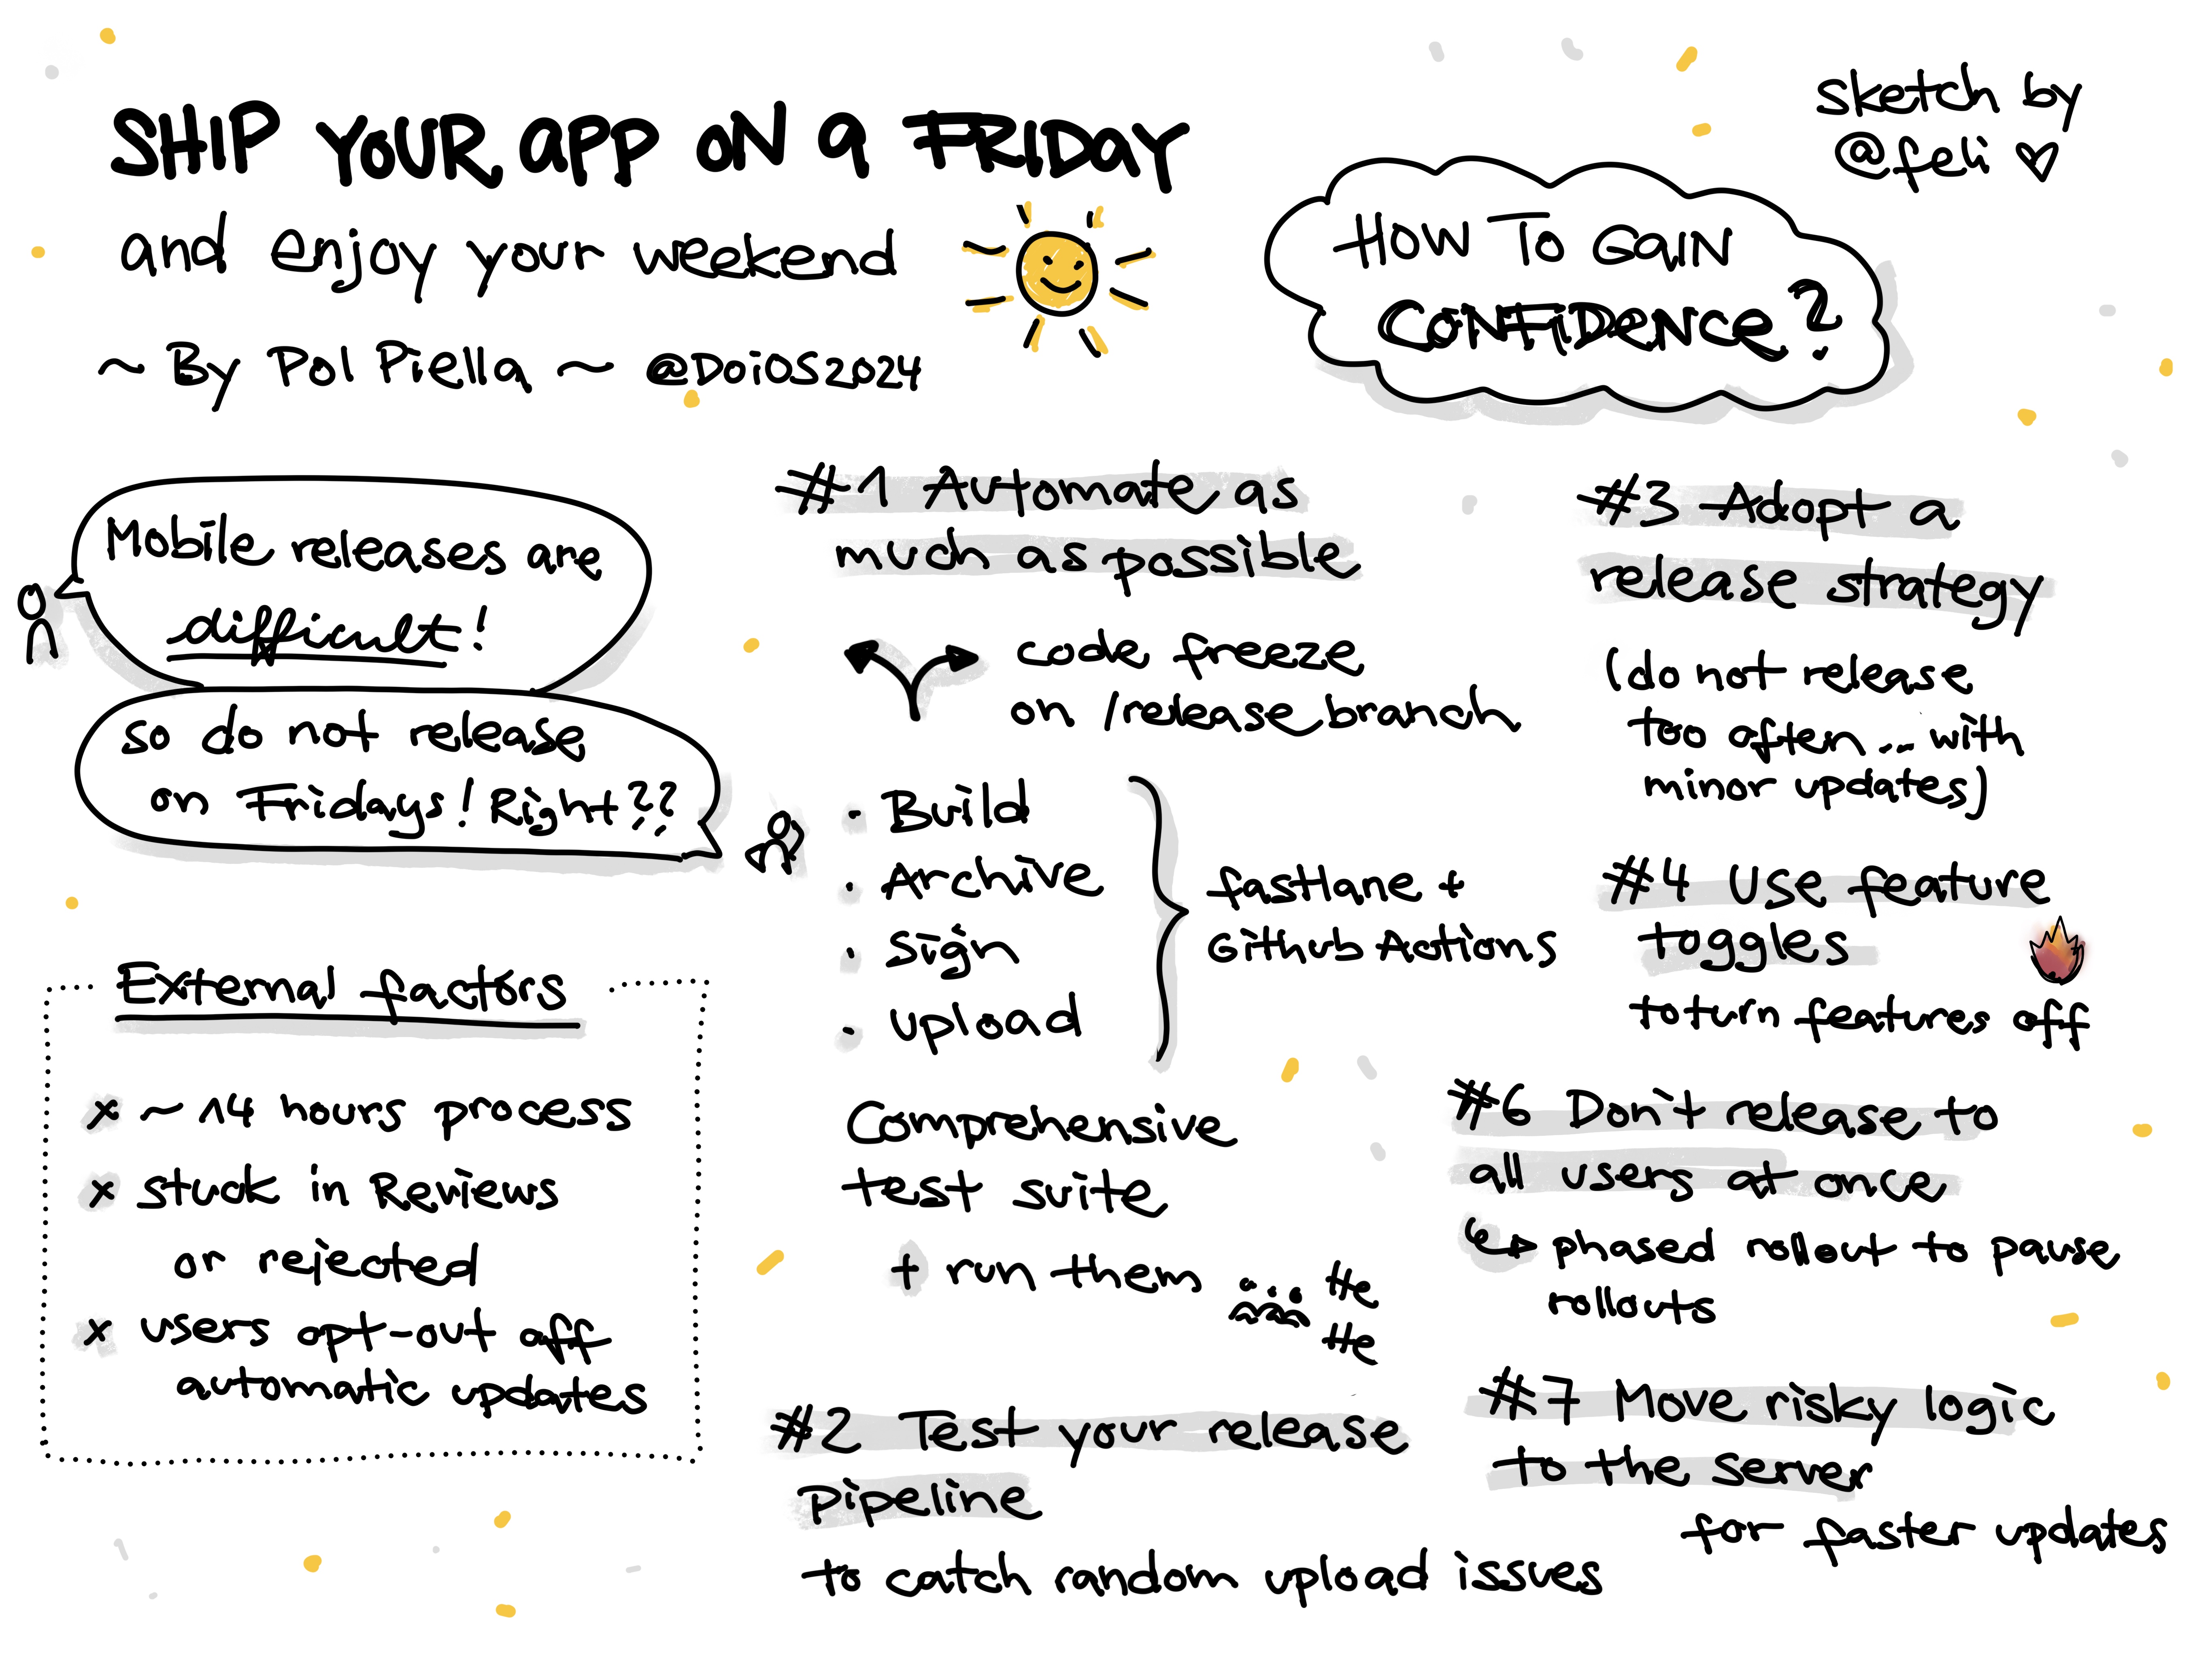 SHIP YOUR APP ON A FRIDAY
and enjoy your weekend
~ By Pol Piella ~ @DoiOS2024
sketch by
@feli ♡
HOW TO GAIN
CONFIDENCE?
Mobile releases are
difficult!
so do not release
on Fridays! Right??
External factors
x ~14 hours process
x stuck in Reviews
or rejected
x users opt-out off
automatic updates
#1 Automate as
much as possible
code freeze
on /release branch
• Build
• Archive
• Sign
• upload
fastlane +
Github Actions
Comprehensive
test suite
+ run them
He
He
#2 Test your release
pipeline
to catch random upload issues
#3 Adopt a
release strategy
(do not release
too often ... with
minor updates)
#4 Use feature
toggles
to turn features off
#6 Don't release to
all users at once
↳ phased rollout to pause
rollouts
#7 Move risky logic
to the server
for faster updates